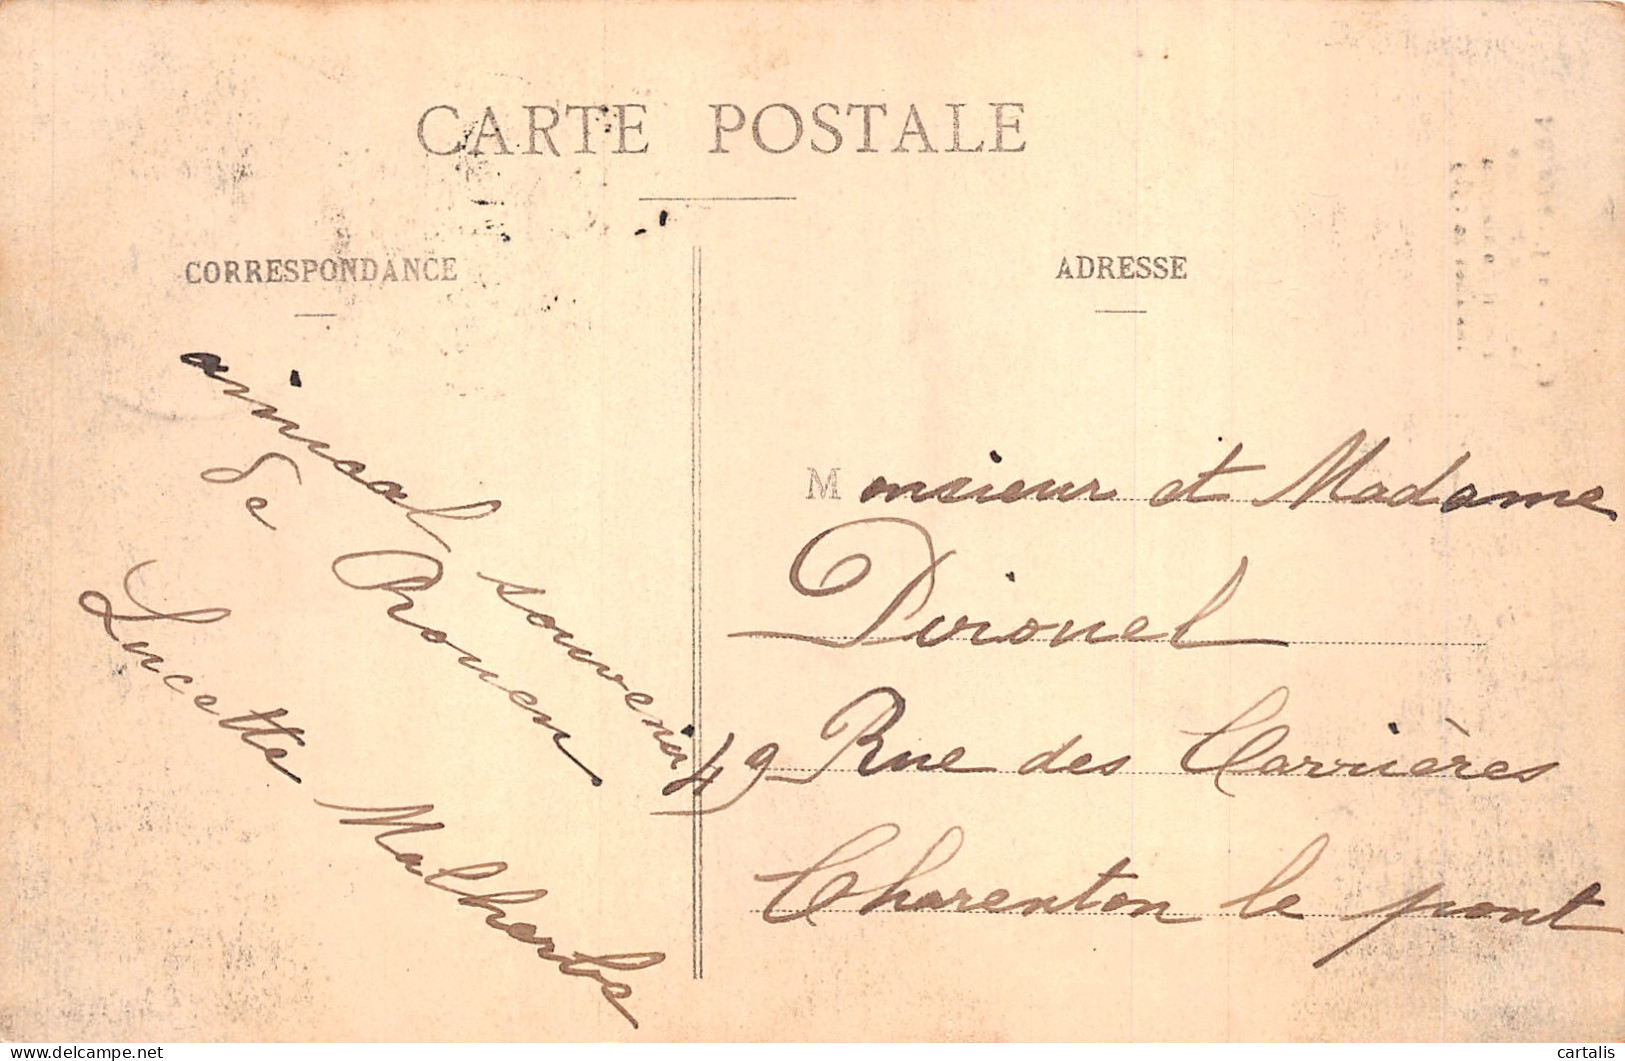 CARTE POSTALE
CORRESPONDANCE
ADRESSE
amical souvenir
de Rouen
Lucette Malherbe
Monsieur et Madame
49 Rue des Carrières
Charenton le pont
delcampe.net
cartalis